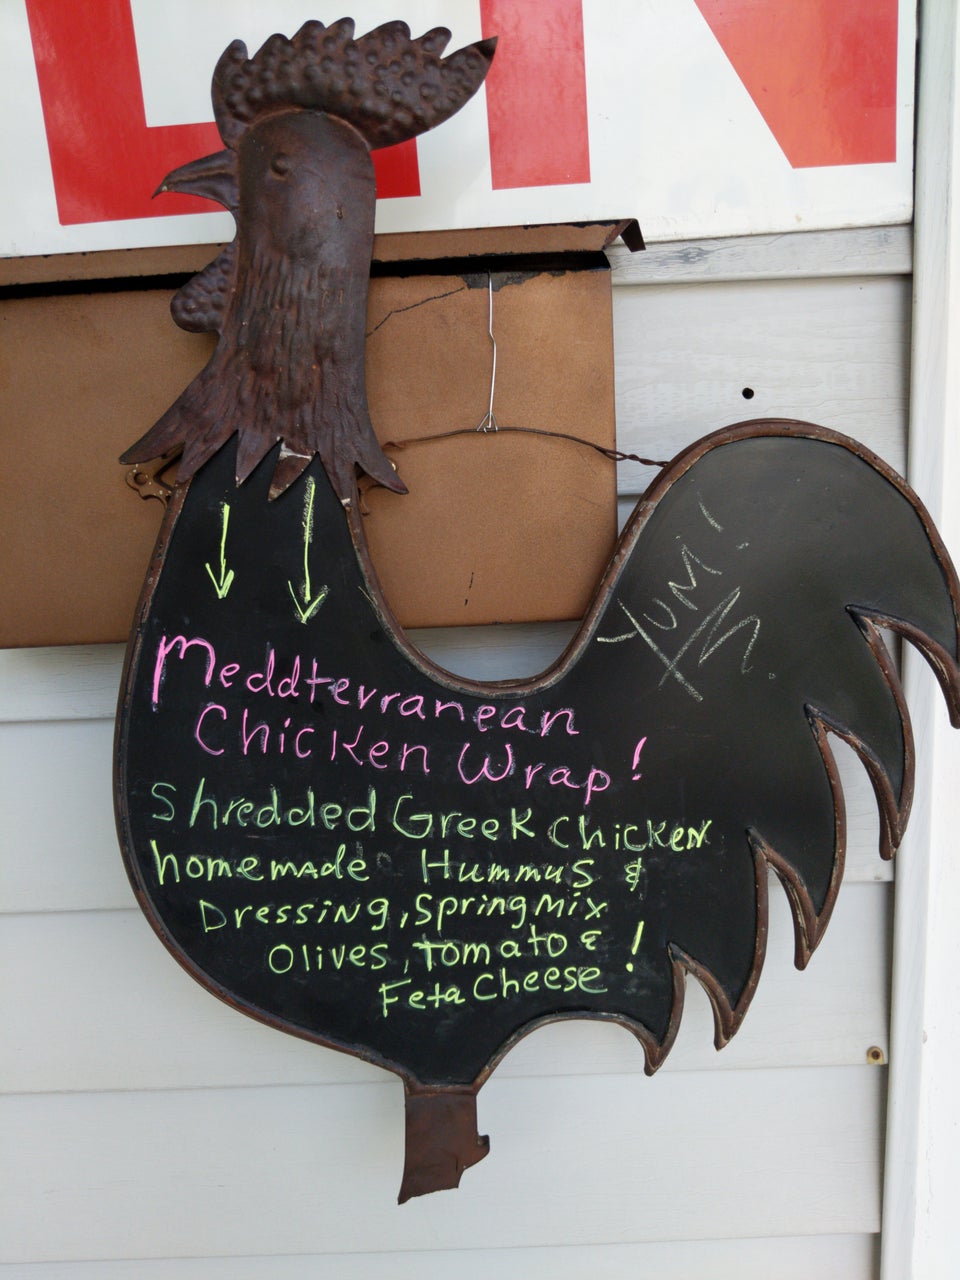 YUM!
Meddterranean
Chicken Wrap!
Shredded Greek Chicken
homemade Hummus &
Dressing, Spring mix
Olives, Tomato & !
Feta Cheese